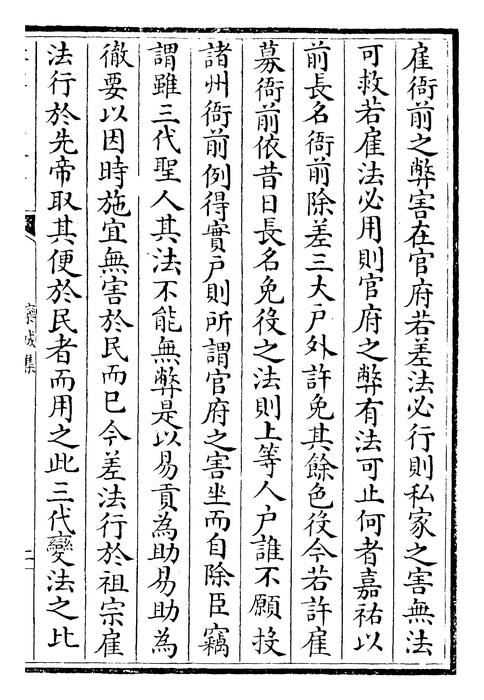 雇衙前之弊害在官府若差法必行則私家之害無法
可救若雇法必用則官府之弊有法可止何者嘉祐以
前長名衙前除差三大戶外許免其餘色役今若許雇
募衙前依昔日長名免役之法則上等人戶誰不願投
諸州衙前例得實戶則所謂官府之害坐而自除臣竊
謂雖三代聖人其法不能無弊是以易貢為助易助為
徹要以因時施宜無害於民而已今差法行於祖宗雇
法行於先帝取其便於民者而用之此三代變法之比
欒城集
二